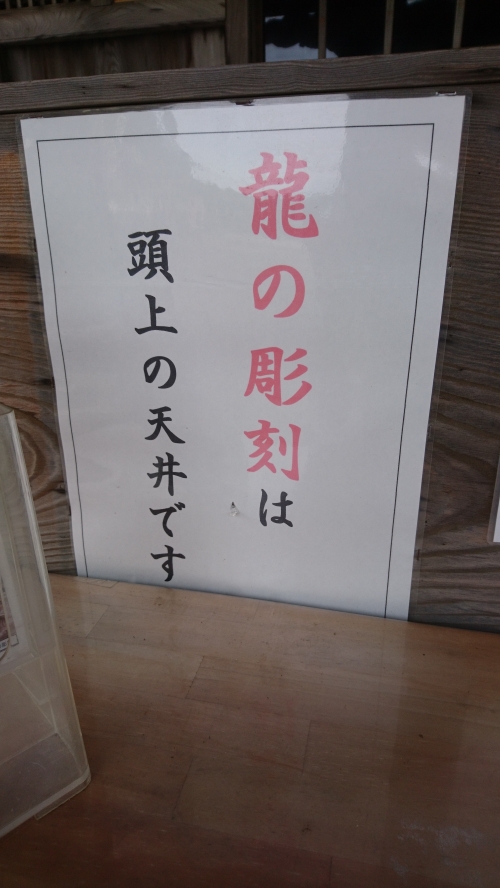 龍の彫刻は
頭上の天井です